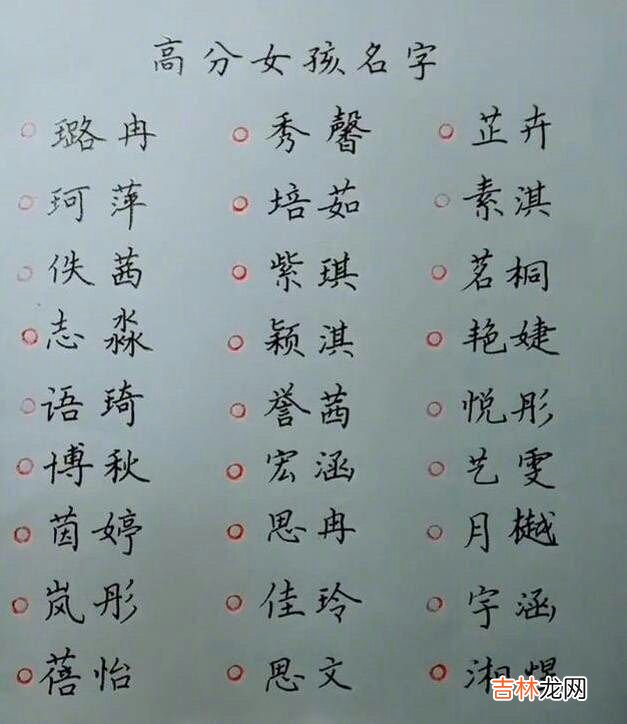 高分女孩名字
璐冉 秀馨 芷卉
珂萍 培茹 素淇
佚茜 紫琪 茗桐
志淼 颖淇 艳婕
语琦 誉茜 悦彤
博秋 宏涵 艺雯
茵婷 思冉 月樾
岚彤 佳玲 宇涵
蓓怡 思文 湘
吉林龙网